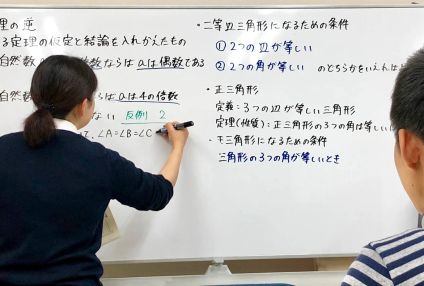 理の逆
る定理の仮定と結論を入れかえたもの
自然数 数ならば aは偶数である
自然数 らば aは4の倍数
ない 反例 2
て、∠A=∠B=∠C
・二等辺三角形になるための条件
① 2つの辺が等しい
② 2つの角が等しい のどちらかをいえば
・正三角形
定義:3つの辺が等しい三角形
定理(性質):正三角形の3つの角は等し
・正三角形になるための条件
三角形の3つの角が等しいとき